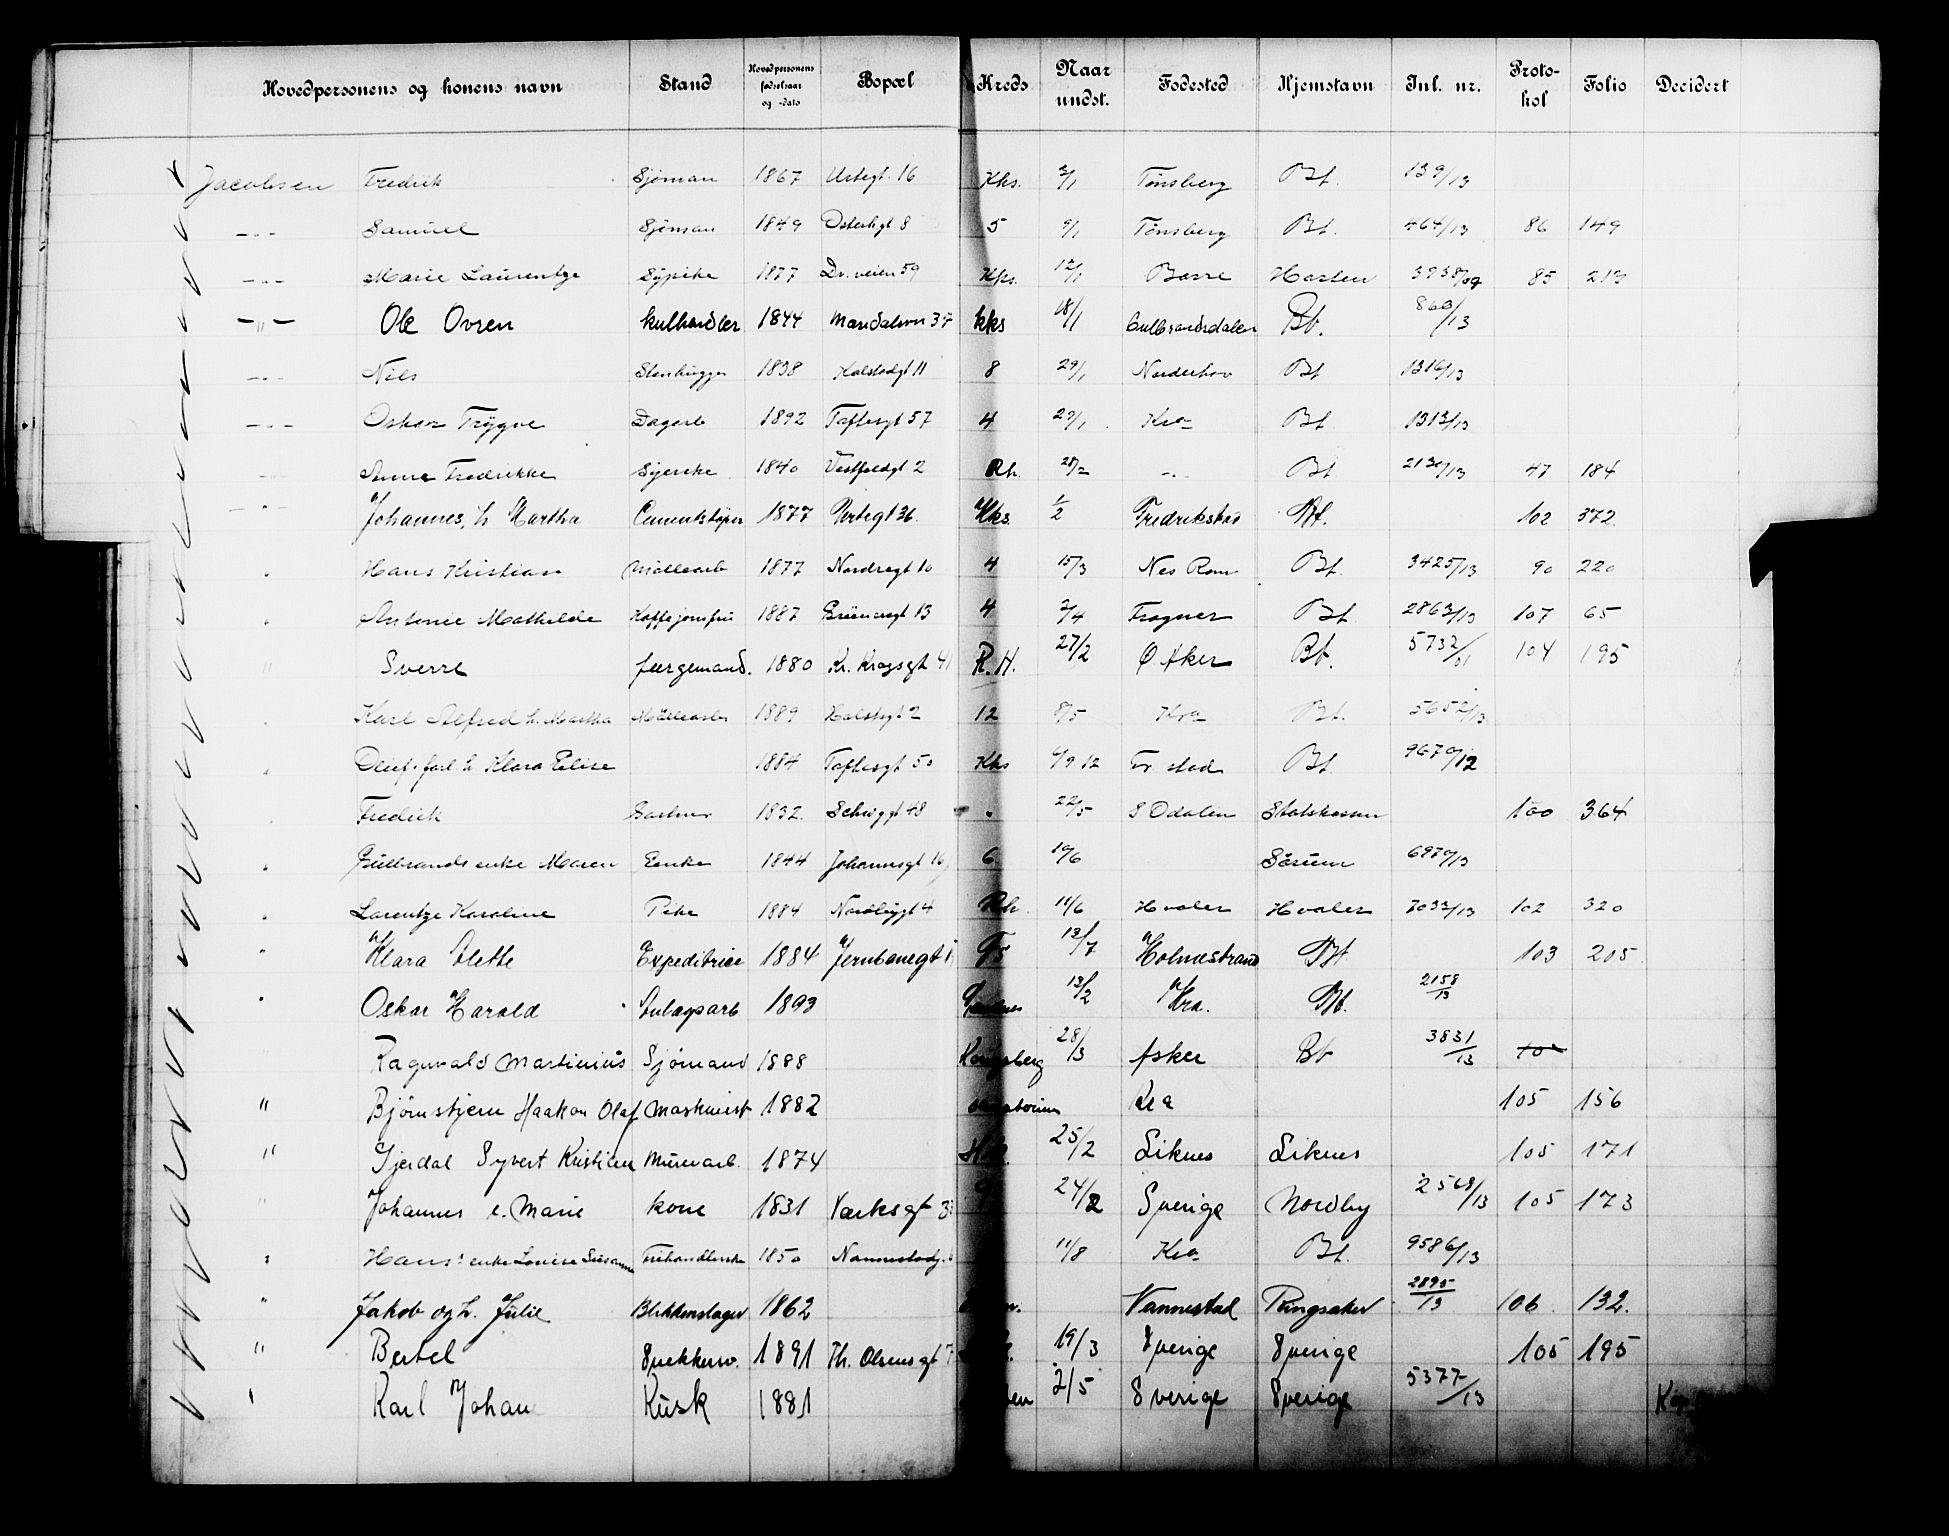 Hovedpersonens og konens navn Stand Hovedpersonens fødselsaar og -dato Bopæl Kreds Naar undst. Fødested Hjemstavn Inl. nr. Protokol Folio Decidert
Jacobsen Fredrik Sjøman 1867 Urtegt. 16 Kks. 2/1 Tønsberg Bf. 139/13
— " — Samuel Sjøman 1849 Osterhgt 8 5 9/1 Tønsberg Bf. 464/13 86 149
— " — Marie Laurentze Sypike 1877 Dr. veien 59 Kks. 12/1 Borre Horten 3938/09 85 213
— " — Ole Ovren kulhandler 1844 Maridalsvn 37 kks 18/1 Gulbrandsdalen Bf. 860/13
— " — Nils Stenhugger 1838 Kalstadgt 11 8 29/1 Norderhov Bf 1316/13
— " — Oskar Trygve Dagarb 1892 Toftesgt 57 4 29/1 Kra Bf 1313/13
— " — Anna Fredrikke Syerske 1840 Vestfoldgt 2 Rh. 28/2 — " — Bf 2130/13 47 184
— " — Johannes, h Martha Cementstøper 1877 Urtegt 36. Kks. 1/2 Fredrikstad Bf. 102 372
" Hans Kristian Møllearb 1877 Nordregt 10 4 15/3 Nes Rom Bf. 3425/13 90 220
" Antonie Mathilde Kaffejomfru 1887 Grünersgt 13 4 2/4 Frogner Bf. 2863/13 107 65
" Sverre feiergemand. 1880 Kr. Krogsgt 41 R.H. 27/2 Ø Aker Bf. 5732/01 104 195
" Karl Alfred h. Martha Møllearb 1889 Holstgt 2 12 8/5 Kra Bf. 5652/13
" Oluf. farl. h Klara Elise 1884 Toftesgt 50 Kks 6/9 12 Fr. stad Bf. 9670/12
" Fredrik Gartner 1832. Schwggt 48 " 22/5 S Odalen Statskassen 100 364
" Gulbrands enke Maren Enke 1844 Johannsgt 16 6 19/6 Sørum 6970/13
" Lorentze Karoline Pike 1884 Nordbygt 4 Rh. 11/6 Hvaler Hvaler 7033/13 102 320
" Klara Alette Expeditrice 1884 Jernbanegt 13/7 Holmestrand Bf. 103 205
" Oskar Harald Anlagsarb 1893 13/2 Kra. Bf. 2158/13
Ragnvald Martinius Sjømand 1888 Kongsberg 28/13 Asker Bf 3831/13
" Bjørnstjern Haakon Olaf Maskinist 1882 Kra 105 156
" Gjerdal Syvert Kristian Murerarb. 1874 25/2 Liknes Liknes 105 171
" Johannes e. Marie kone 1831 Værksgt 24/2 Sverige Nordby 2568/13 105 173
" Hans' enke Lovise Susanna Frihandlerske 1850 Nannestadg. 11/8 Kra Bf. 9586/13
" Jakob og h. Julie Blikkenslager 1862 Nannestad Ringsaker 2895/13 106 132.
" Bertel Snekkersv. 1891 Th. Olsensgt 19/3 Sverige Sverige 105 195
" Karl Johan Kusk 1881 2/5 Sverige Sverige 5377/13